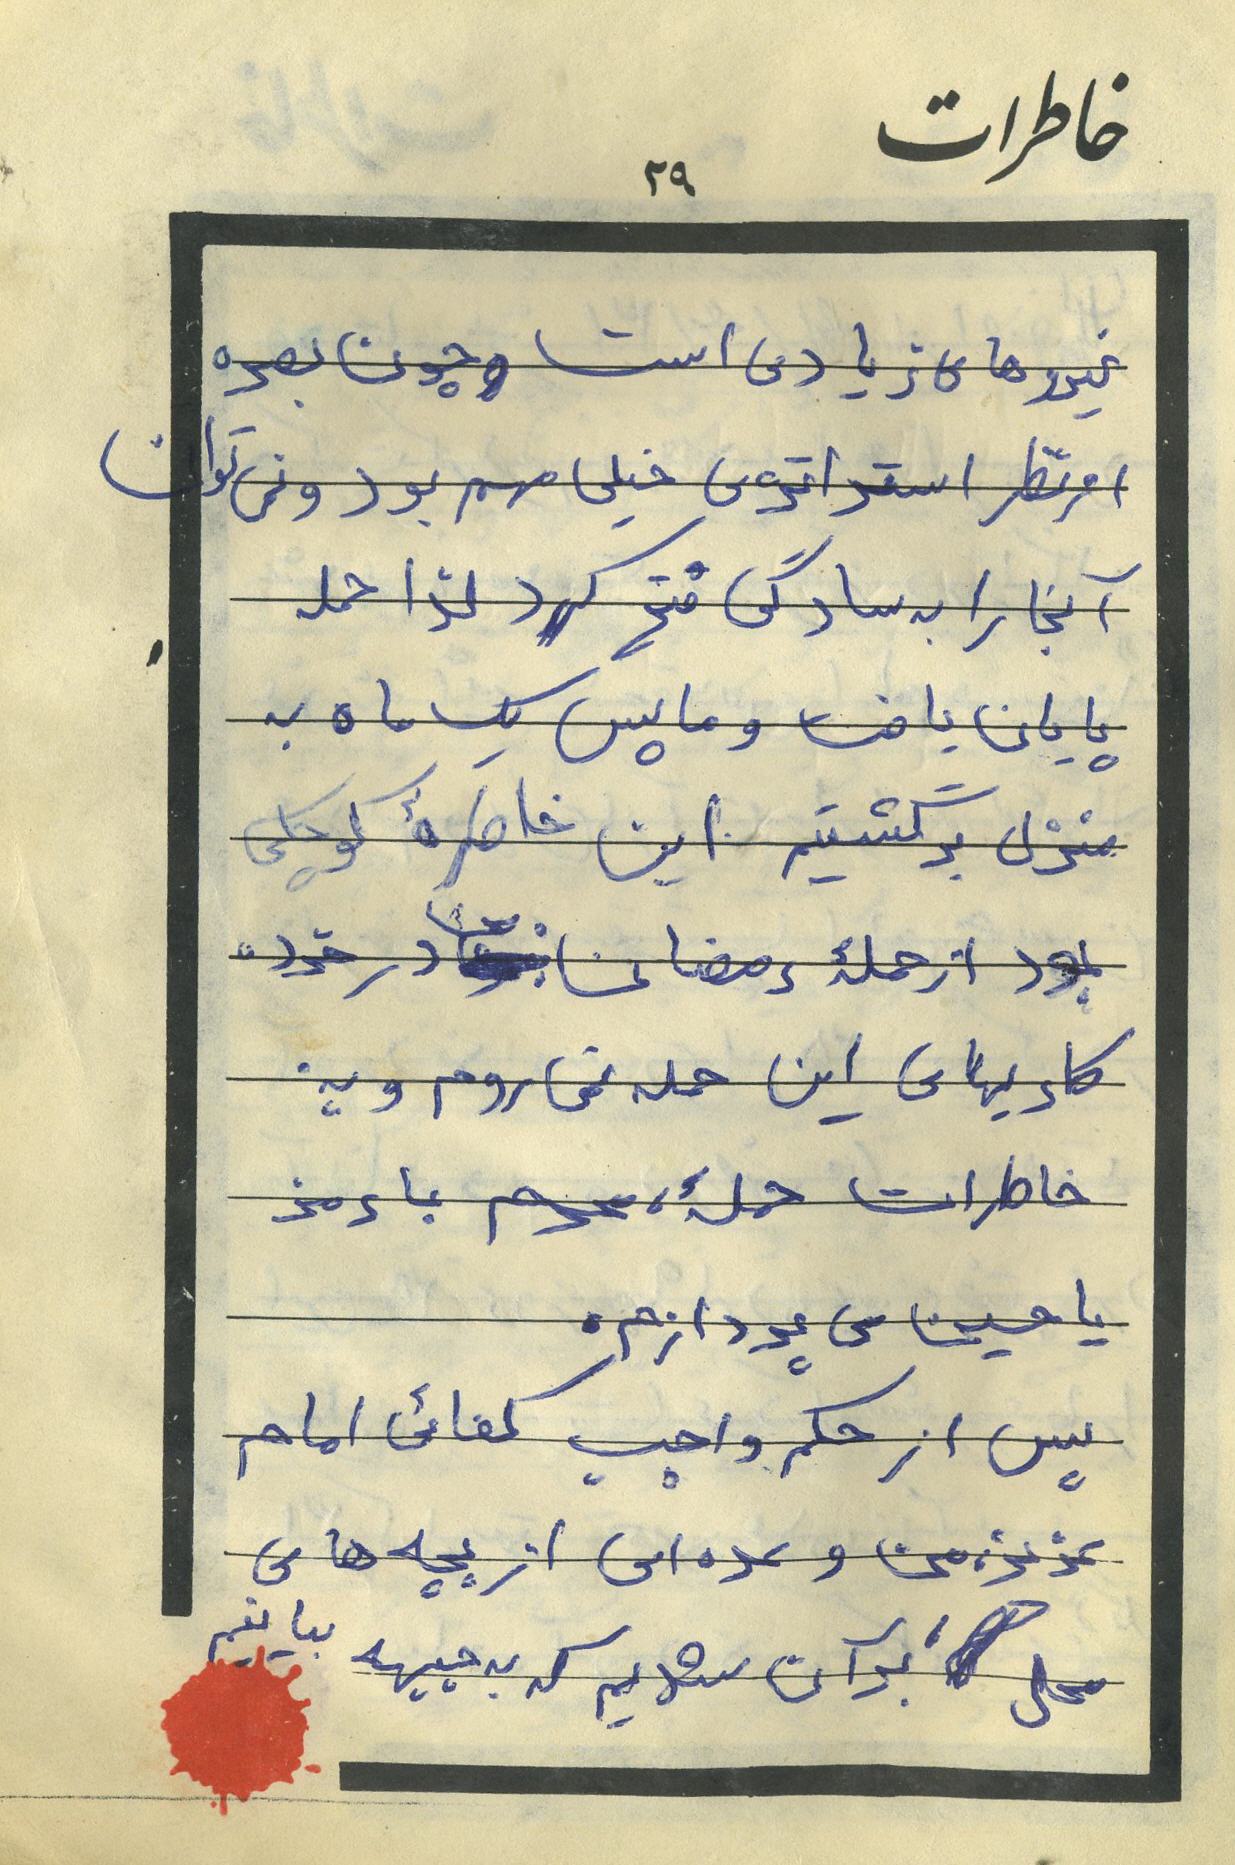 خاطرات
۲۹
نیروهای زیادی است و چون بصره
از نظر استراتژی خیلی مهم بود و نمی توان
آنجا را به سادگی فتح کرد لذا حمله
پایان یافت و ما پس یک ماه به
منزل برگشتیم. این خاطرهٔ کوچکی
بود از حملهٔ رمضان در خرد
کاریهای این حمله نمی روم و به
خاطرات حملهٔ محرم با رمز
یا حسین می پردازم.
پس از حکم واجب کفائی امام
عزیز، من و عده ای از بچه های
محل برآن شدیم که به جبهه بیائیم